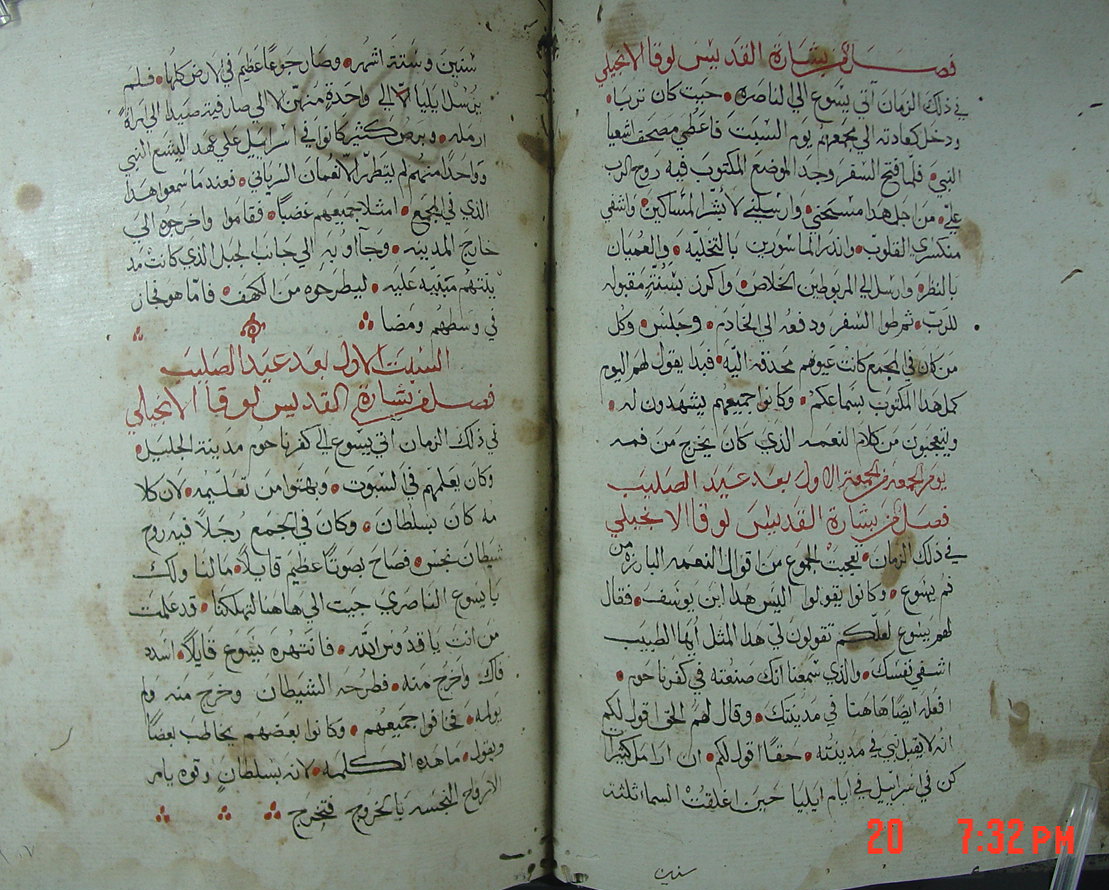 فصل من بشارة القديس لوقا الانجيلي
في ذلك الزمان اتي يسوع الي الناصره • حيت كان تربا •
ودخل كعادته الي مجمعهم يوم السبت فاعطي مصحف اشعيا
النبي • فلما فتح السفر وجد الموضع المكتوب فيه روح الرب
علي • من اجل هدا مسحني • وارسلني لابشر المساكين • واشفي
منكسري القلوب • وانذر الماسورين بالتخليه • والعميان
بالنظر • وارسل الي المربوطين الخلاص • واكرز بسنة مقبوله
للرب • ثم طوا السفر ودفعه الي الخادم • وجلس • وكل
من كان في المجمع كانت عيونهم محدقه اليه • فبدا يقول لهم اليوم
كمل هدا المكتوب بسماعكم • وكانوا جميعهم يشهدون له •
ويتعجبون من كلام النعمه الذي كان يخرج من فمه
يوم الجمعه من الجمعة الاولي بعد عيد الصليب
فصل من بشارة القديس لوقا الانجيلي
في ذلك الزمان • تعجبت الجموع من اقوال النعمه البارزه من
فم يسوع • وكانوا يقولوا اليس هدا ابن يوسف • فقال
لهم يسوع لعلكم تقولون لي هدا المثل ايها الطبيب
اشفي نفسك • والذي سمعنا انك صنعته في كفرناحوم •
افعله ايضا هاهنا في مدينتك • وقال لهم الحق اقول لكم
انه لا يقبل نبي في مدينته • حقا اقول لكم • ان ارامل كثيرا
كن في اسراييل في ايام ايليا حين اغلقت السما ثلثة
سنين
سنين وستة اشهر • وصار جوعا عظيم في الارض كلها • فلم
يرسل ايليا الي واحدة منهن الا الي صارفية صيدا الي امراة
ارمله • وبرص كثير كانوا في اسراييل علي عهد اليشع النبي
وواحدا منهم لم يتطهر الا نعمان السرياني • فعندما سمعوا هدا
الذي في المجمع • امتلا جميعهم غضبا • فقاموا واخرجوه الي
خارج المدينه • وجاآو به الي جانب الجبل الذي كانت مد
ينتهم مبنيه عليه • ليطرحوه من الكهف • فاما هو فجاز
في وسطهم ومضا
السبت الاول بعد عيد الصليب
فصل من بشارة القديس لوقا الانجيلي
في ذلك الزمان اتي يسوع الي كفرناحوم مدينة الجليل •
وكان يعلمهم في السبوت • وبهتوا من تعليمه • لان كلا
مه كان بسلطان • وكان في المجمع رجلا فيه روح
شيطان نجس • فصاح بصوتا عظيم قايلا • مالنا ولك
يا يسوع الناصري جيت الي هاهنا لتهلكنا • قد علمت
من انت يا قدوس الله • فانتهره يسوع قايلا • اسدد
فاك واخرج منه • فطرحه الشيطان وخرج منه ولم
يولمه • فخافوا جميعهم • وكانوا بعضهم يخاطب بعضا
ويقول • ما هده الكلمه • لانه بسلطان وقوه يامر
الارواح النجسه بالخروج فتخرج
20 7:32 PM